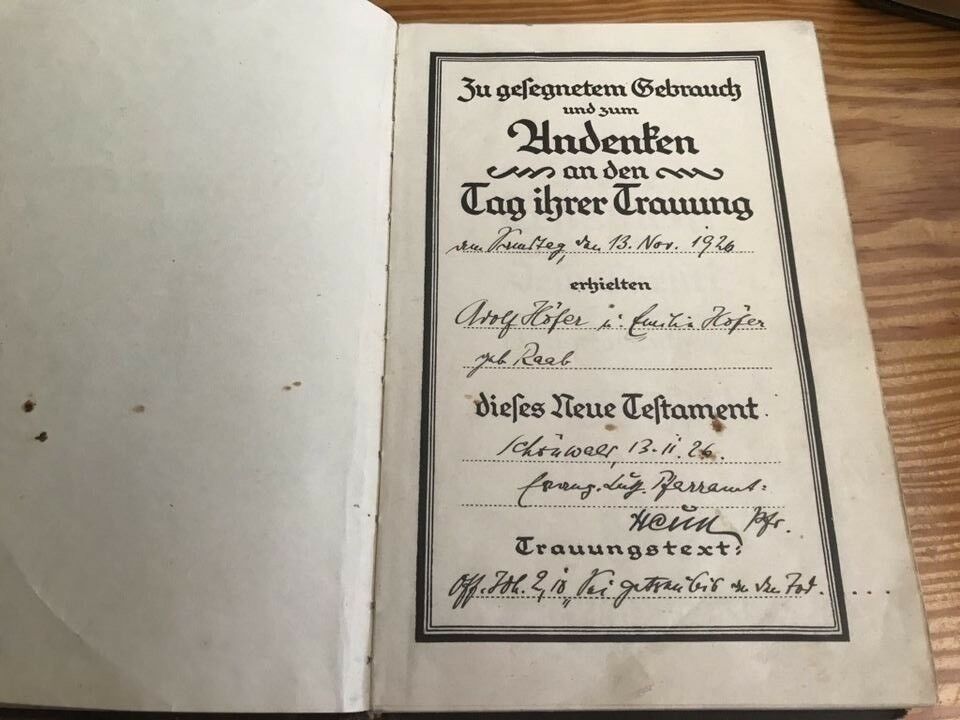 Zu gesegnetem Gebrauch
und zum
Andenken
an den
Tag ihrer Trauung
am Samstag, den 13. Nov. 1926
erhielten
Adolf Höfer u. Emilie Höfer
geb Raab
dieses Neue Testament.
Schönwald, 13. 11. 26.
Evang. Luth. Pfarramt:
Pfr.
Trauungstext:
Off. Joh. 2, 10 „Sei getreu bis in den Tod. . . . .